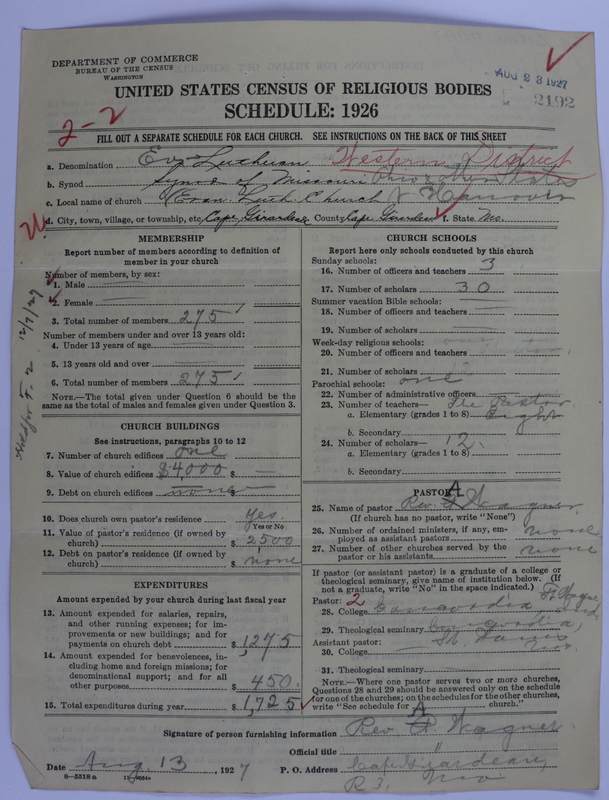 DEPARTMENT OF COMMERCE
BUREAU OF THE CENSUS
WASHINGTON
AUG 23 1927
2192
UNITED STATES CENSUS OF RELIGIOUS BODIES
SCHEDULE: 1926
2-2
FILL OUT A SEPARATE SCHEDULE FOR EACH CHURCH. SEE INSTRUCTIONS ON THE BACK OF THIS SHEET
a. Denomination Ev. Lutheran Western District
b. Synod Synod of Missouri Ohio & other States
c. Local name of church Evan. Luth. Church Hanover
d. City, town, village, or township, etc. Cape Girardeau County Cape Girardeau f. State Mo.
MEMBERSHIP
Report number of members according to definition of member in your church
Number of members, by sex:
1. Male
2. Female
3. Total number of members 275
Number of members under and over 13 years old:
4. Under 13 years of age
5. 13 years old and over
6. Total number of members 275
NOTE.—The total given under Question 6 should be the same as the total of males and females given under Question 3.
CHURCH BUILDINGS
See instructions, paragraphs 10 to 12
7. Number of church edifices one
8. Value of church edifices $4,000 $
9. Debt on church edifices none $
10. Does church own pastor's residence Yes.
Yes or No
11. Value of pastor's residence (if owned by church) $ 2500
12. Debt on pastor's residence (if owned by church) $ none
EXPENDITURES
Amount expended by your church during last fiscal year
13. Amount expended for salaries, repairs, and other running expenses; for improvements or new buildings; and for payments on church debt $ 1,275
14. Amount expended for benevolences, including home and foreign missions; for denominational support; and for all other purposes $ 450.
15. Total expenditures during year $ 1,725
CHURCH SCHOOLS
Report here only schools conducted by this church
Sunday schools:
16. Number of officers and teachers 3
17. Number of scholars 30
Summer vacation Bible schools:
18. Number of officers and teachers
19. Number of scholars
Week-day religious schools:
20. Number of officers and teachers
21. Number of scholars
Parochial schools: one
22. Number of administrative officers
23. Number of teachers— The Pastor
a. Elementary (grades 1 to 8) Eight
b. Secondary
24. Number of scholars— 12.
a. Elementary (grades 1 to 8)
b. Secondary
PASTOR
25. Name of pastor Rev. A. Wagner
(If church has no pastor, write "None")
26. Number of ordained ministers, if any, employed as assistant pastors none
27. Number of other churches served by the pastor or his assistants none
If pastor (or assistant pastor) is a graduate of a college or theological seminary, give name of institution below. (If not a graduate, write "No" in the space indicated.)
Pastor: 2
28. College Concordia Ft. Wayne Ind.
29. Theological seminary Concordia,
Assistant pastor: St. Louis
30. College Mo.
31. Theological seminary
NOTE.—Where one pastor serves two or more churches, Questions 28 and 29 should be answered only on the schedule for one of the churches; on the schedules for the other churches, write "See schedule for church."
Signature of person furnishing information Rev. A. Wagner
Official title "
Date Aug. 13, 1927 P. O. Address Cape Girardeau,
R 3, Mo
8—5318 a